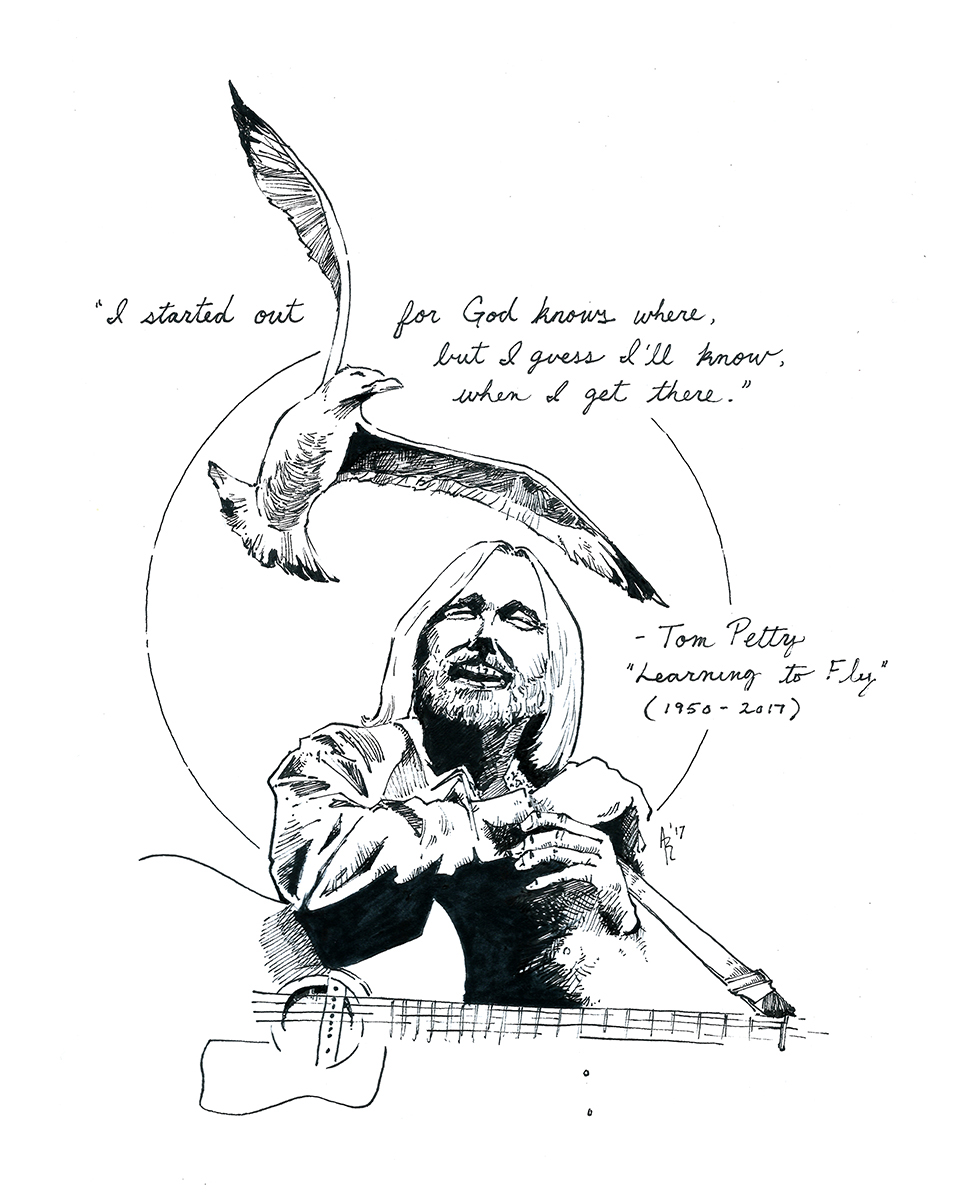 "I started out for God knows where,
but I guess I'll know,
when I get there."
- Tom Petty
"Learning to Fly"
(1950 - 2017)
AR '17